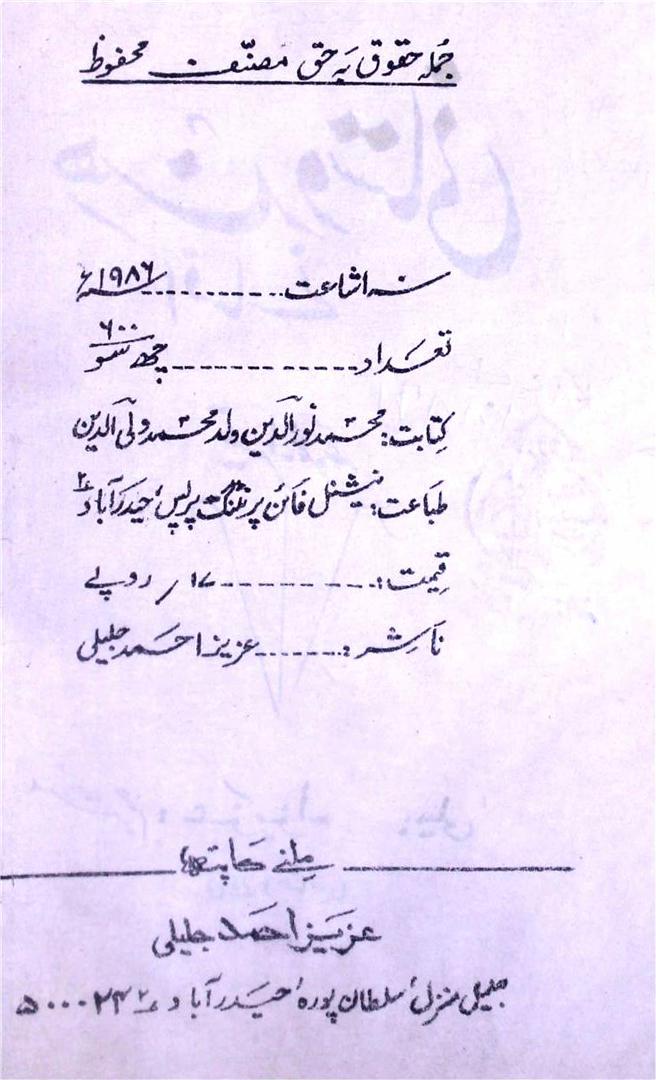 جملہ حقوق بہ حق مصنّف محفوظ
سنہ اشاعت ---------- ۱۹۸۶ء
تعداد ------------- چھ سو ۶۰۰
کتابت: محمد نورالدین ولد محمد ولی الدین
طباعت: نیشنل فائن پرنٹنگ پریس، حیدرآباد
قیمت: ---------- ۱۷/ روپے
ناشر: ------- عزیز احمد جلیلی
ملنے کا پتہ
عزیز احمد جلیلی
جلیلی منزل، سلطان پورہ، حیدرآباد ۲۴ ۵۰۰۰